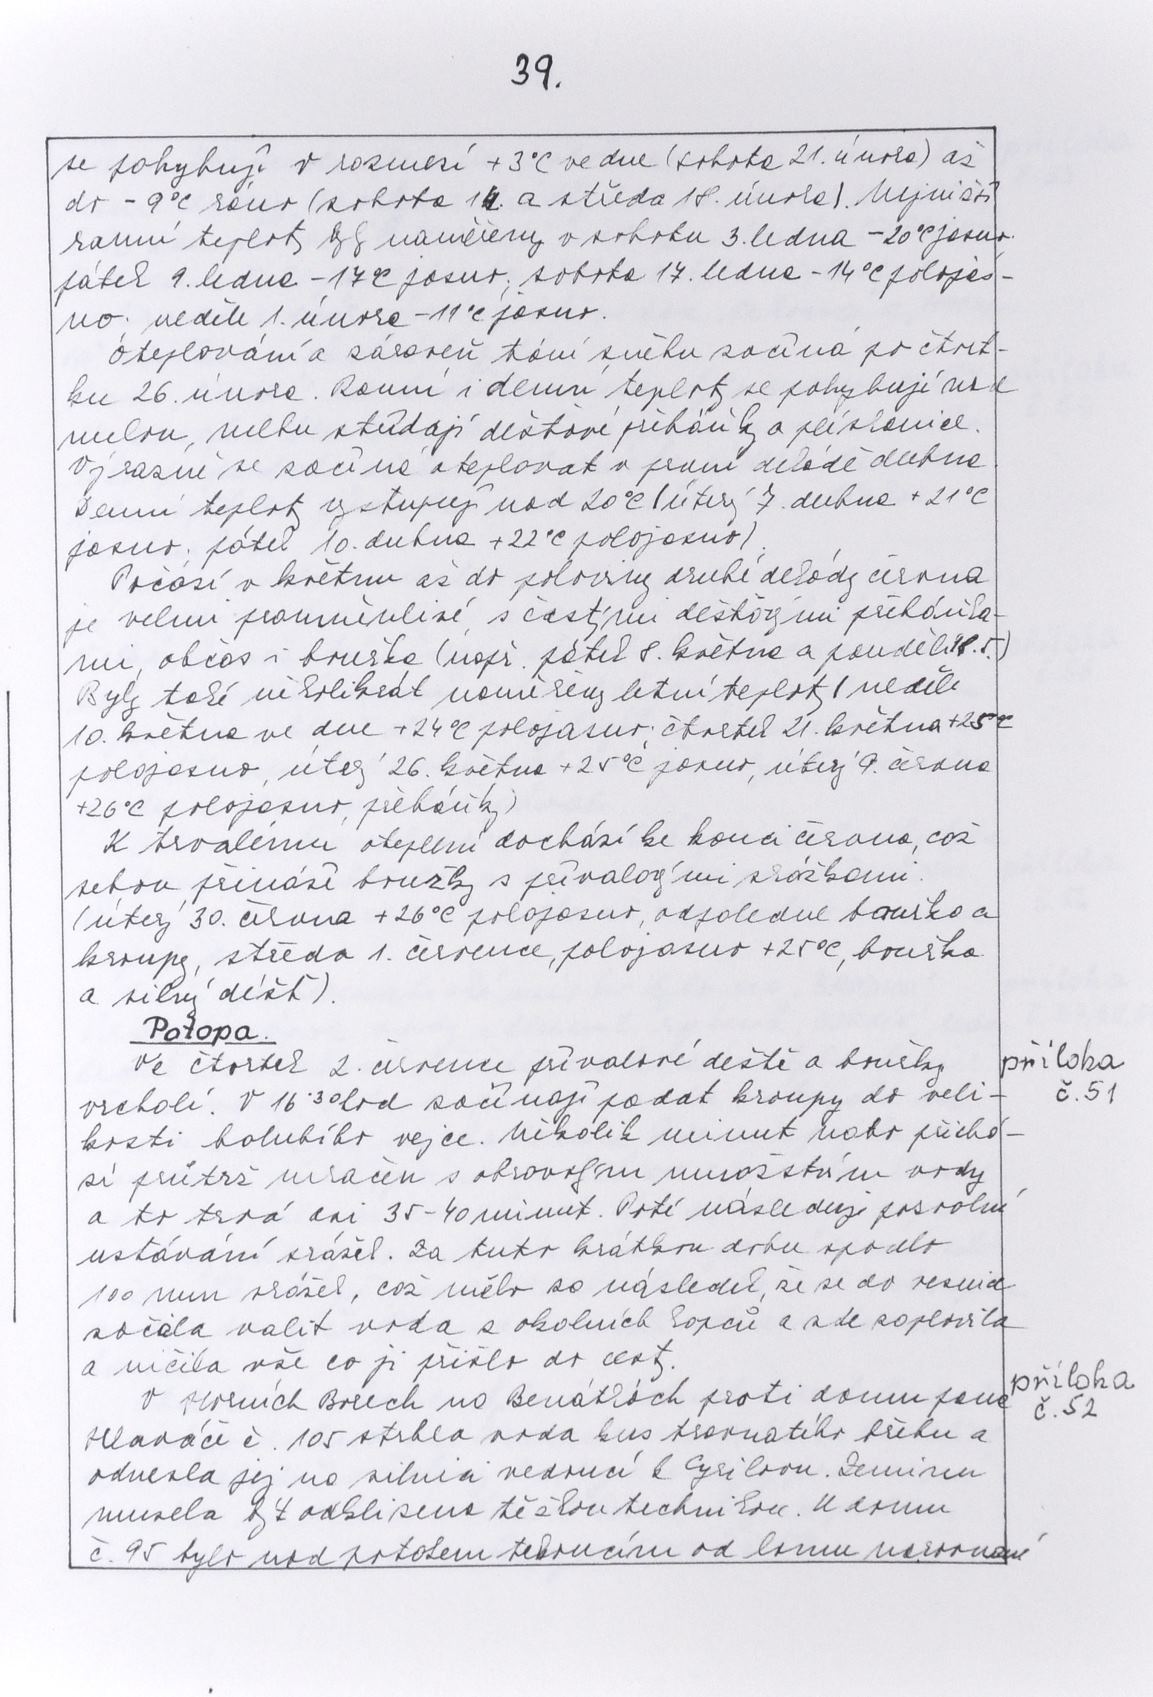 39.
se pohybují v rozmezí +3°C ve dne (sobota 21. února) až
do -9°C ráno (sobota 14. a středa 18. února). Nejnižší
ranní teploty byly naměřeny v sobotu 3. ledna -20°C jasno.
pátek 9. ledna -17°C jasno, sobota 17. ledna -14°C polojas-
no, neděle 1. února -11°C jasno.
Oteplování a zároveň tání sněhu začíná po čtvrt-
ku 26. února. Ranní i denní teploty se pohybují nad
nulou, mlhu střídají dešťové přeháňky a plískanice.
Výrazně se začíná oteplovat v první dekádě dubna.
Denní teploty vystupují nad 20°C (úterý 7. dubna +21°C
jasno, pátek 10. dubna +22°C polojasno).
Počasí v květnu až do poloviny druhé dekády června
je velmi proměnlivé, s častými dešťovými přeháňka-
mi, občas i bouřka (např. pátek 8. května a pondělí 18.5.)
Byly také několikrát naměřeny letní teploty (neděle
10. května ve dne +24°C polojasno, čtvrtek 21. května +25°C
polojasno, úterý 26. května +25°C jasno, úterý 9. června
+26°C polojasno, přeháňky)
K trvalému oteplení dochází ke konci června, což
sebou přináší bouřky s přívalovými srážkami.
(úterý 30. června +26°C polojasno, odpoledne bouřka a
kroupy, středa 1. července, polojasno +25°C, bouřka
a silný déšť).
Potopa.
Ve čtvrtek 2. července přívalové deště a bouřky
příloha
č. 51
vrcholí. V 16.30 hod začínají padat kroupy do veli-
kosti holubího vejce. Několik minut nato přichá-
zí průtrž mračen s obrovským množstvím vody
a to trvá asi 35-40 minut. Poté následuje pozvolné
ustávání srážek. Za tuto krátkou dobu spadlo
100 mm srážek, což mělo za následek, že se do vesnice
začala valit voda z okolních kopců a zde zaplavila
a ničila vše co jí přišlo do cesty.
V Horních Borech na Benátkách proti domu pana
příloha
č. 52
Hlaváče č. 105 strhla voda kus travnatého břehu a
odnesla jej na silnici vedoucí k Cyrilovu. Zeminu
musela být odklizena těžkou technikou. U domu
č. 95 bylo nad potokem tekoucím od lomu narovnané